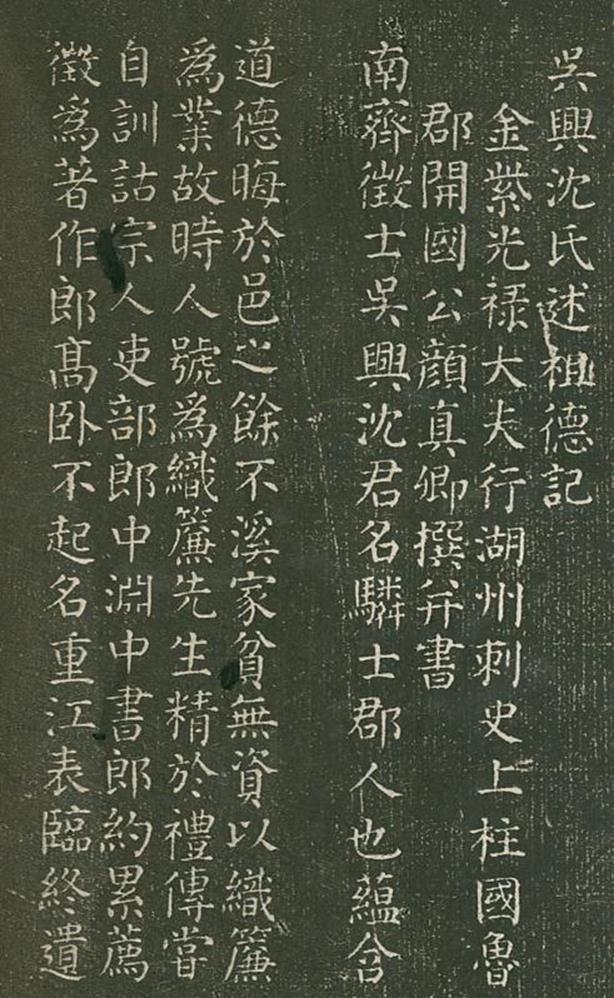 吳興沈氏述祖德記
金紫光禄大夫行湖州刺史上柱國魯
郡開國公顏真卿撰并書
南齊徵士吳興沈君名驎士郡人也蘊含
道德晦於邑之餘不溪家貧無資以織簾
為業故時人號為織簾先生精於禮傳嘗
自訓詁宗人吏部郎中淵中書郎約累薦
徵為著作郎高卧不起名重江表臨終遺